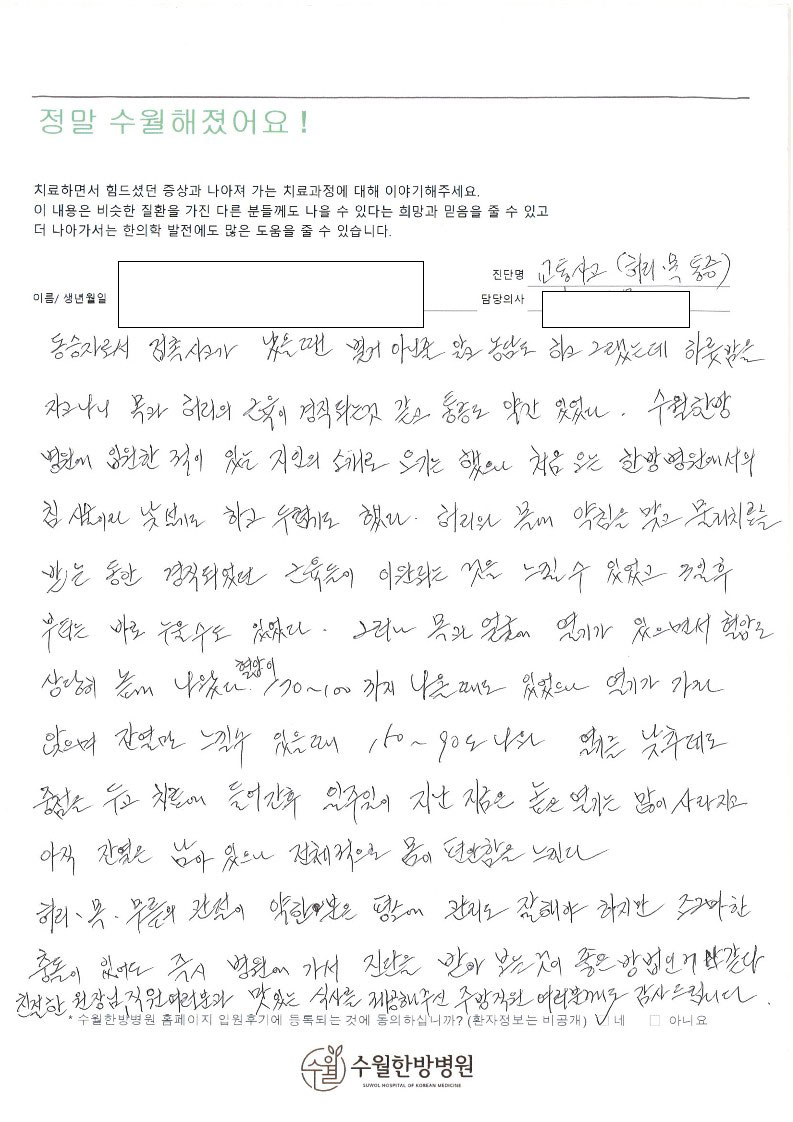 정말 수월해졌어요!
치료하면서 힘드셨던 증상과 나아져 가는 치료과정에 대해 이야기해주세요.
이 내용은 비슷한 질환을 가진 다른 분들께도 나을 수 있다는 희망과 믿음을 줄 수 있고
더 나아가서는 한의학 발전에도 많은 도움을 줄 수 있습니다.
진단명 교통사고 (허리·목 통증)
이름/ 생년월일 담당의사
동승자로서 접촉사고가 났을땐 별거 아닌줄 알고 농담도 하고 그랬는데 하룻밤을
자고나니 목과 허리의 근육이 경직되는것 같고 통증도 약간 있었다. 수월한방
병원에 입원한 적이 있는 지인의 소개로 오기는 했으나 처음 오는 한방병원에서의
침 시술이라 낯설기도 하고 두렵기도 했다. 허리와 목에 약침을 맞고 물리치료를
받는 동안 경직되었던 근육들이 이완되는 것을 느낄 수 있었고 3일후
부터는 바로 누울수도 있었다. 그러나 목과 얼굴에 열기가 있으면서 혈압도
상당히 높게 나왔다. 혈압이 170~100 까지 나올때도 있었으나 열기가 가라
앉으며 잔열만 느낄수 있을때 150~90도 나와 열기를 낮추데도
중점을 두고 치료에 들어간후 일주일이 지난 지금은 높은 열기는 많이 사라지고
아직 잔열은 남아 있으나 전체적으로 몸이 편안함을 느낀다
허리·목·무릎의 관절이 약한 분은 평소에 관리도 잘해야 하지만 조그마한
충돌이 있어도 즉시 병원에 가서 진단을 받아 보는것이 좋은 방법인거 같다
친절한 원장님 직원여러분과 맛있는 식사를 제공해주신 주방직원 여러분께도 감사드립니다.
* 수월한방병원 홈페이지 입원후기에 등록되는 것에 동의하십니까? (환자정보는 비공개) ☑ 네 □ 아니요
수월 수월한방병원
SUWOL HOSPITAL OF KOREAN MEDICINE